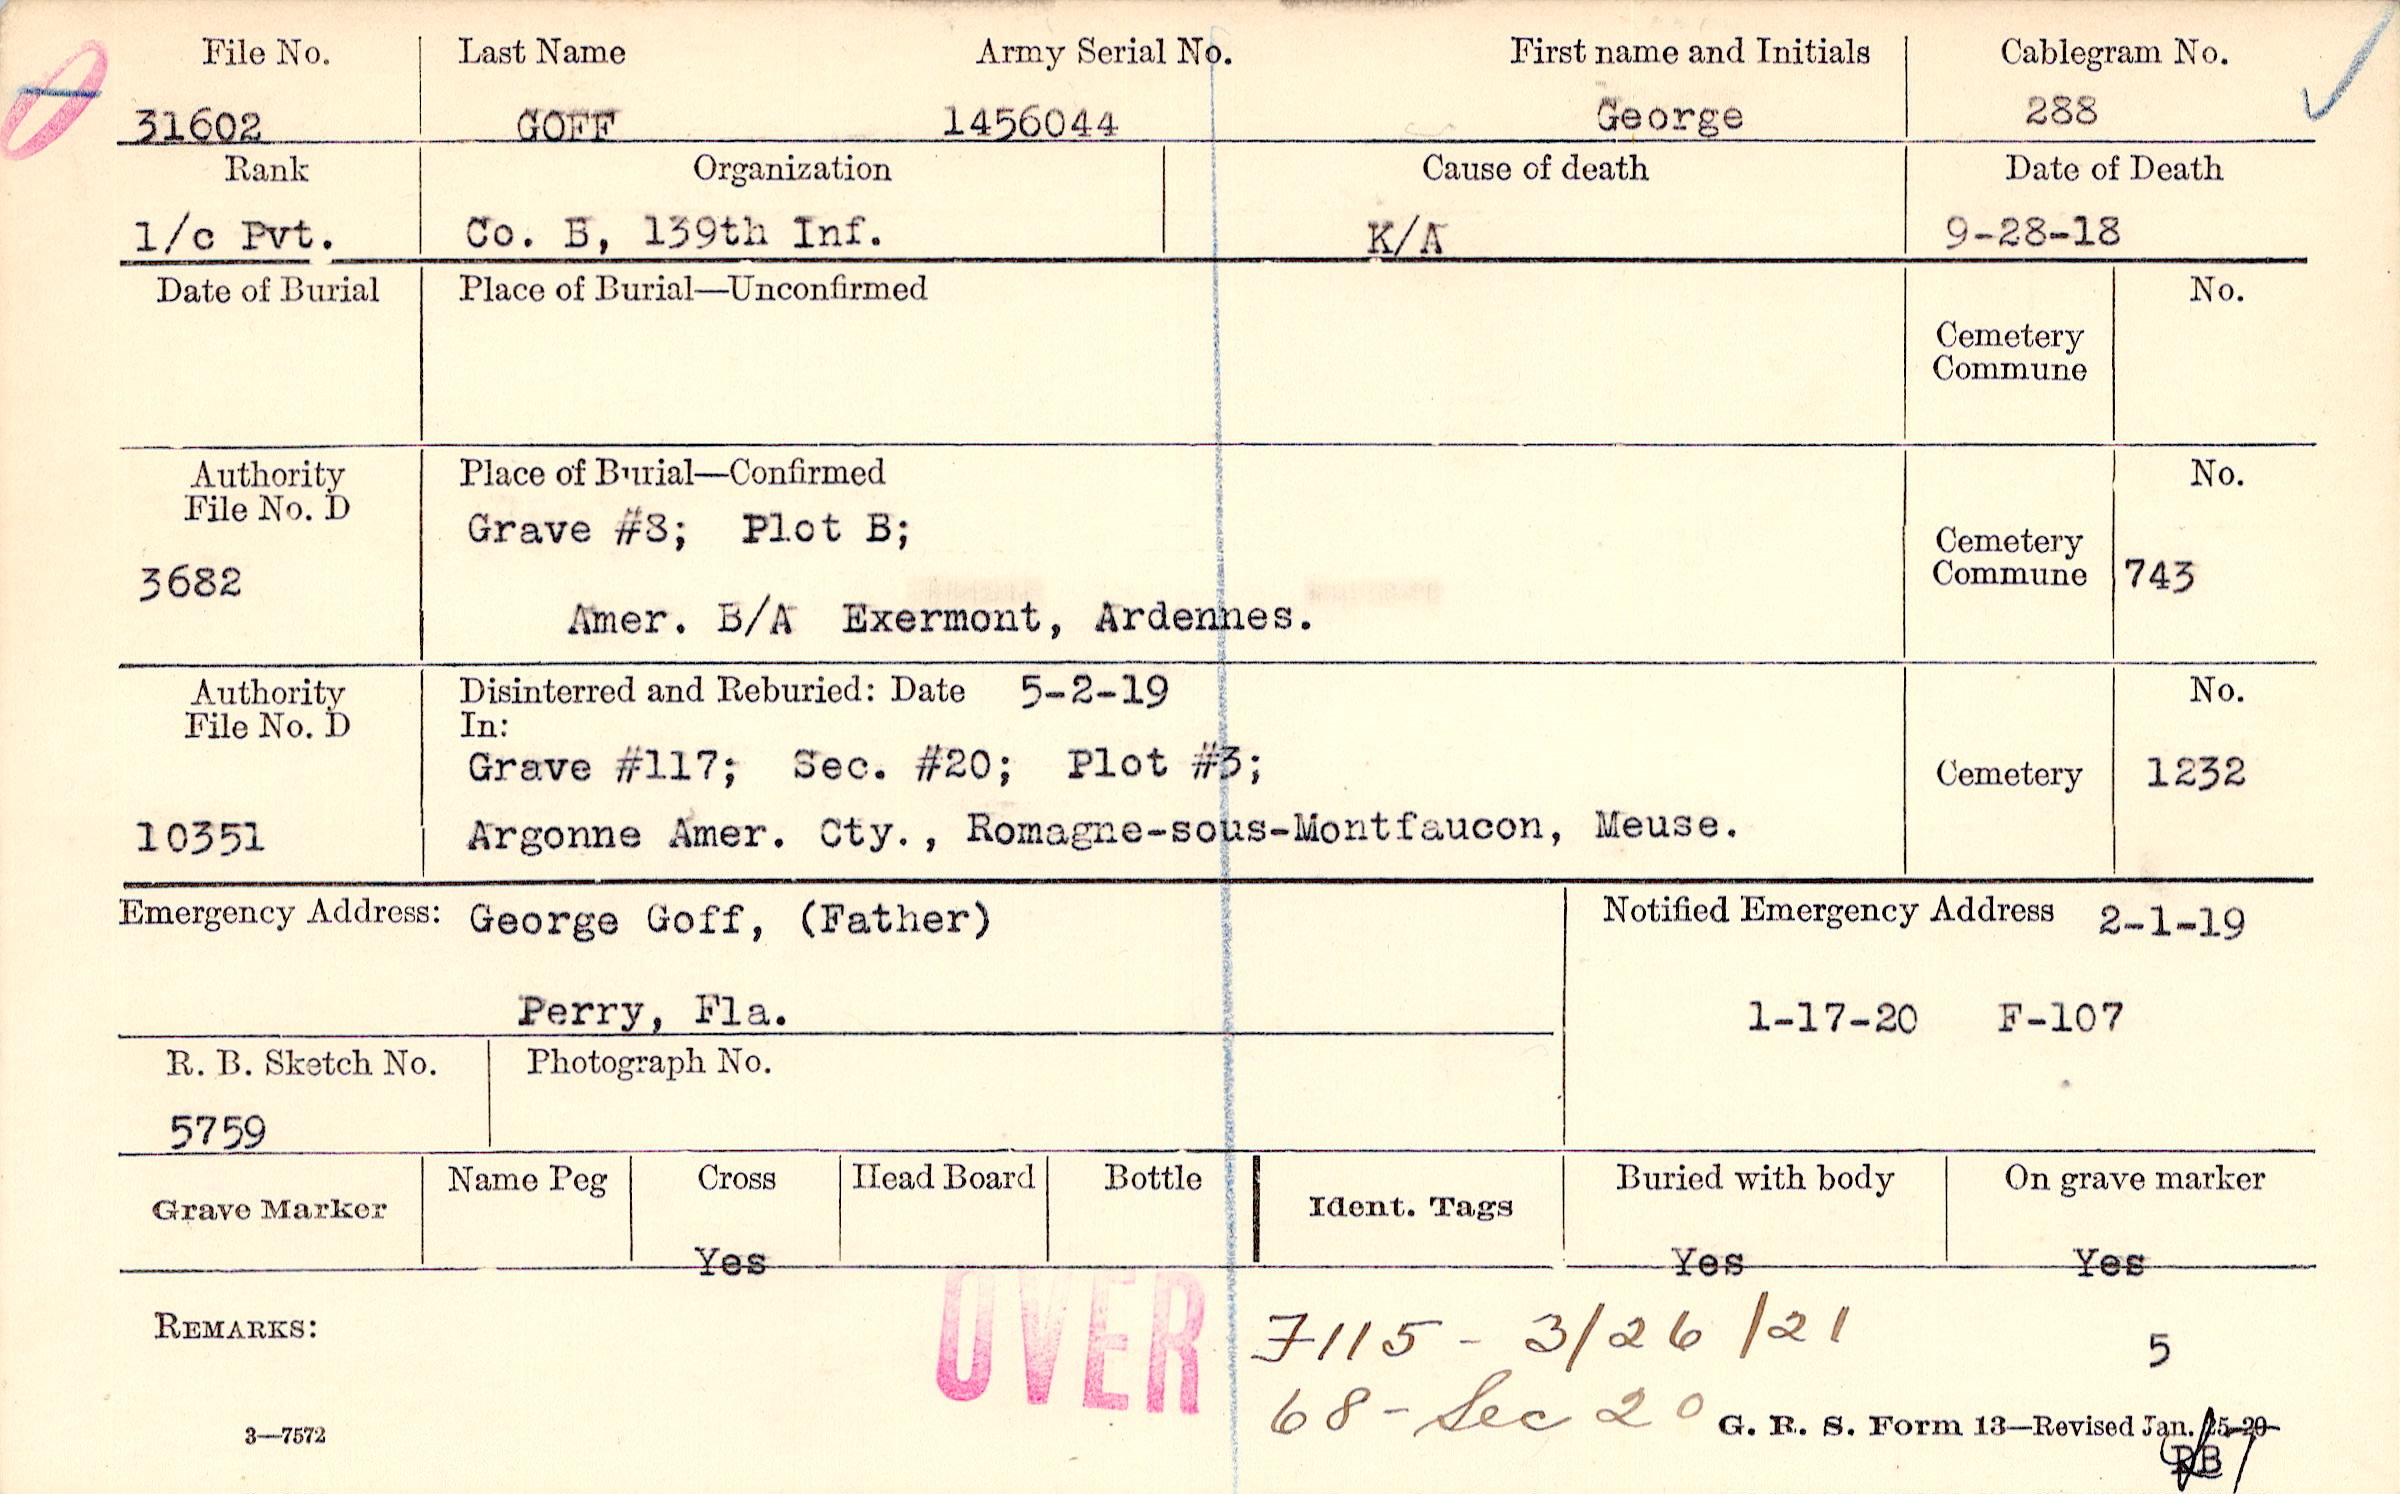 File No. Last Name Army Serial No. First name and Initials Cablegram No.
31602 GOFF 1456044 George 288
Rank Organization Cause of death Date of Death
1/c Pvt. Co. B, 139th Inf. K/A 9-28-18
Date of Burial Place of Burial—Unconfirmed No.
Cemetery
Commune
Authority Place of Burial—Confirmed No.
File No. D
Grave #8; Plot B;
Cemetery
3682 Commune 743
Amer. B/A Exermont, Ardennes.
Authority Disinterred and Reburied: Date 5-2-19 No.
File No. D In:
Grave #117; Sec. #20; Plot #3;
Cemetery 1232
10351 Argonne Amer. Cty., Romagne-sous-Montfaucon, Meuse.
Emergency Address: George Goff, (Father) Notified Emergency Address 2-1-19
Perry, Fla. 1-17-20 F-107
R. B. Sketch No. Photograph No.
5759
Grave Marker Name Peg Cross Head Board Bottle Ident. Tags Buried with body On grave marker
Yes Yes Yes
REMARKS: OVER 7115 - 3/26/21 5
68 - Sec 20
3—7572 G. R. S. Form 13—Revised Jan. 25-20
RB